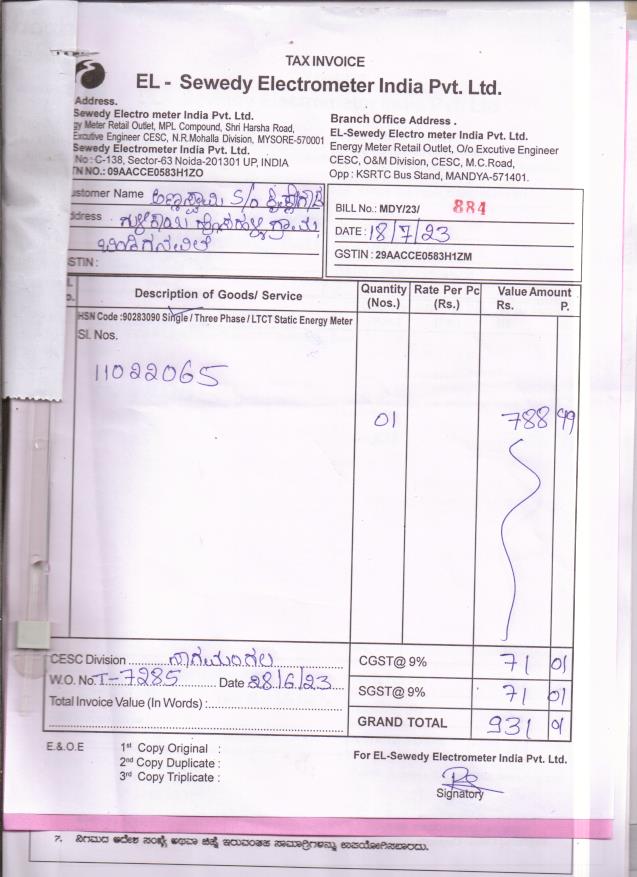 TAX INVOICE
EL - Sewedy Electrometer India Pvt. Ltd.
Address.
Sewedy Electro meter India Pvt. Ltd.
gy Meter Retail Outlet, MPL Compound, Shri Harsha Road,
Excutive Engineer CESC, N.R.Mohalla Division, MYSORE-570001
Sewedy Electrometer India Pvt. Ltd.
No : C-138, Sector-63 Noida-201301 UP, INDIA
TN NO.: 09AACCE0583H1ZO
Branch Office Address .
EL-Sewedy Electro meter India Pvt. Ltd.
Energy Meter Retail Outlet, O/o Excutive Engineer
CESC, O&M Division, CESC, M.C.Road,
Opp : KSRTC Bus Stand, MANDYA-571401.
ustomer Name S/o
ddress
STIN :
BILL No.: MDY/23/ 884
DATE : 18/7/23
GSTIN : 29AACCE0583H1ZM
Description of Goods/ Service Quantity (Nos.) Rate Per Pc (Rs.) Value Amount Rs. P.
HSN Code :90283090 Single / Three Phase / LTCT Static Energy Meter
Sl. Nos.
11022065
01 788 99
CESC Division ನಾಗಮಂಗಲ
W.O. No. T-7285 Date 28/6/23
Total Invoice Value (In Words) :
CGST@ 9% 71 01
SGST@ 9% 71 01
GRAND TOTAL 931 01
E.& O.E 1st Copy Original :
2nd Copy Duplicate :
3rd Copy Triplicate :
For EL-Sewedy Electrometer India Pvt. Ltd.
Signatory
7. ನಿಗಮದ ಆದೇಶ ಸಂಖ್ಯೆ ಅಥವಾ ಚಿಹ್ನೆ ಇರುವಂತಹ ಸಾಮಾಗ್ರಿಗಳನ್ನು ಉಪಯೋಗಿಸಬಾರದು.